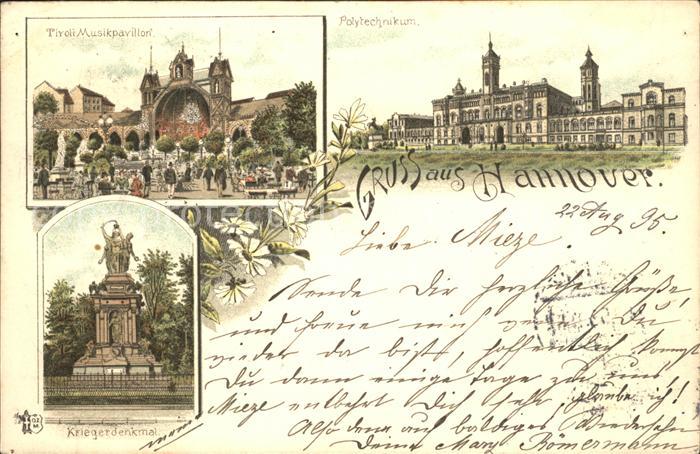 Tivoli Musikpavillon.
Polytechnikum.
Gruss aus Hannover.
22 Aug 95.
Liebe Mieze.
Sende Dir herzliche Grüße,
und freue mich Du
wieder da bist, hoffentlich kommst
Du dann einige Tage zu uns
Mieze entbehrt Dich sehr, glaube ich!
Also denn auf baldiges Wiedersehen
Deine Mary Römermann
Kriegerdenkmal.